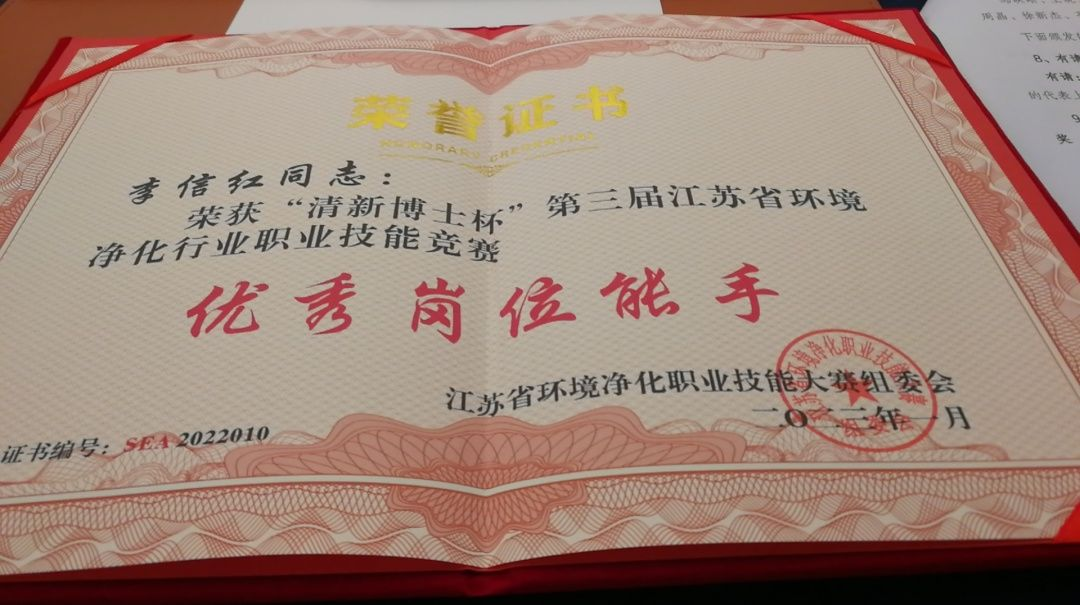 荣誉证书
HONORARY CREDENTIAL
李信红同志：
荣获“清新博士杯”第三届江苏省环境
净化行业职业技能竞赛
优秀岗位能手
江苏省环境净化职业技能大赛组委会
二〇二三年一月
证书编号：SEA 2022010
周晶、徐新杰、
下面颁发
8、有请
有请：
的代表上
9
奖